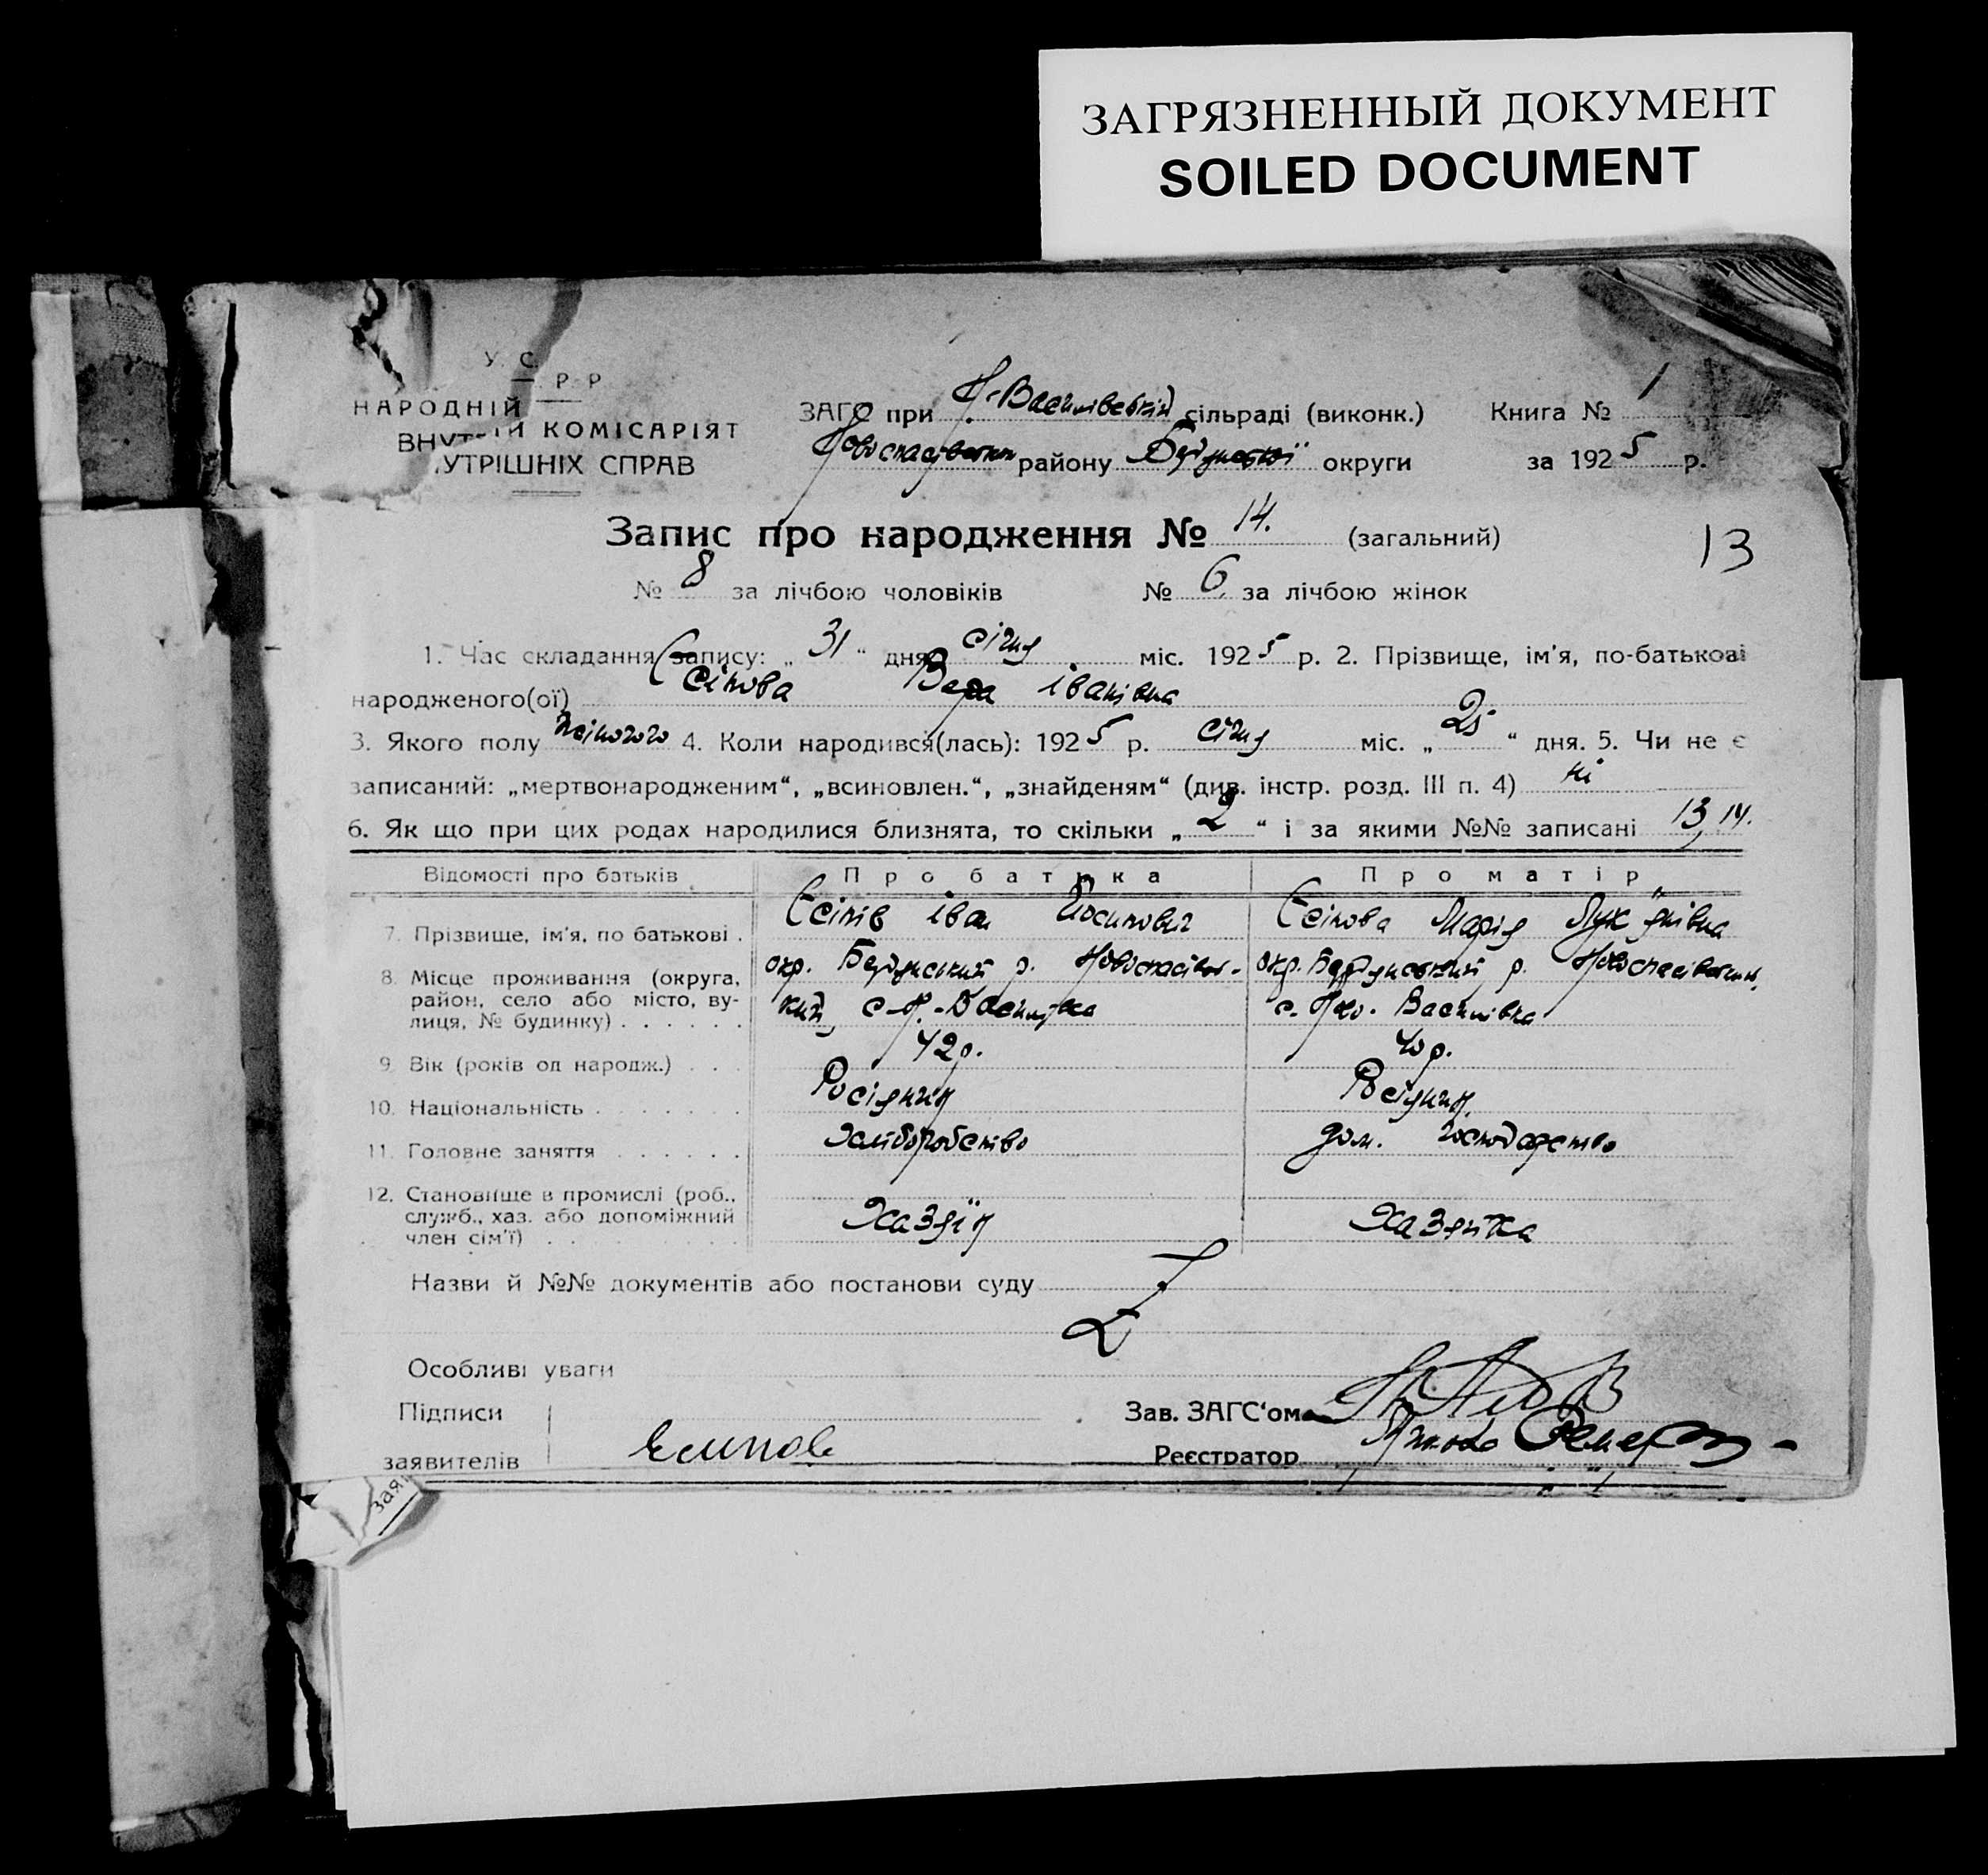 ЗАГРЯЗНЕННЫЙ ДОКУМЕНТ
SOILED DOCUMENT
У. С.
Р Р
НАРОДНІЙ
КОМІСАРІЯТ
УТРІШНІХ СПРАВ
ЗАГС при Н-Василівській сільраді (виконк.) Книга № 1
району округи за 1925 р.
Запис про народження № 14. (загальний)
13
№ 8 за лічбою чоловіків № 6 за лічбою жінок
1. Час складання запису: „31“ дня січня міс. 1925 р. 2. Прізвище, ім'я, по-батькові
народженого(ої) Єсіпова Вера Іванівна
3. Якого полу жіночого 4. Коли народився(лась): 1925 р. січня міс. „25“ дня. 5. Чи не є
записаний: „мертвонародженим“, „всиновлен.“, „знайденям“ (див. інстр. розд. III п. 4) ні
6. Як що при цих родах народилися близнята, то скільки „2“ і за якими №№ записані 13, 14.
Відомості про батьків Про батька Про матір
7. Прізвище, ім'я, по батькові . Єсіпів Іван Йосипович Єсіпова Марія Лук'янівна
8. Місце проживання (округа, окр. Бердянський р. Новоспасівсь- окр. Бердянський р.
район, село або місто, ву- кий, с. Н.-Василівка с. Ново. Василівка
лиця, № будинку) . . . . . .
9. Вік (років од народж.) . . . 42 р. 40 р.
10. Національність . . . . . . . Росіянин Росіянин
11. Головне заняття . . . . . . Хліборобство дом. господарство
12. Становище в промислі (роб.,
служб., хаз. або допоміжний Хазяїн Хазяйка
член сім'ї) . . .
Назви й №№ документів або постанови суду
Особливі уваги
Підписи Зав. ЗАГС'ом
заявителів Есипов Реєстратор